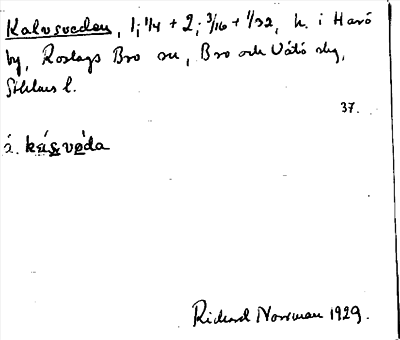 Kalvsveden, 1; 1/4 + 2; 3/16 + 1/32, h. i Harö
by, Roslags Bro sn, Bro och Vätö skg,
Sthlms l.
37.
Richard Norrman 1929.